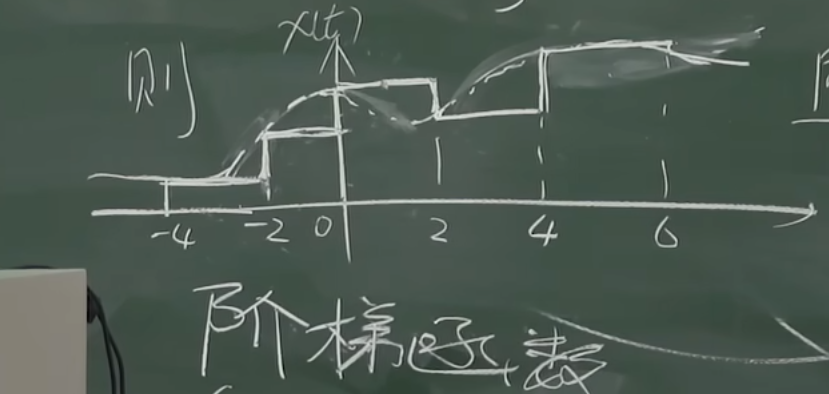 x(t)
则
-4 -2 0 2 4 6
阶梯函数